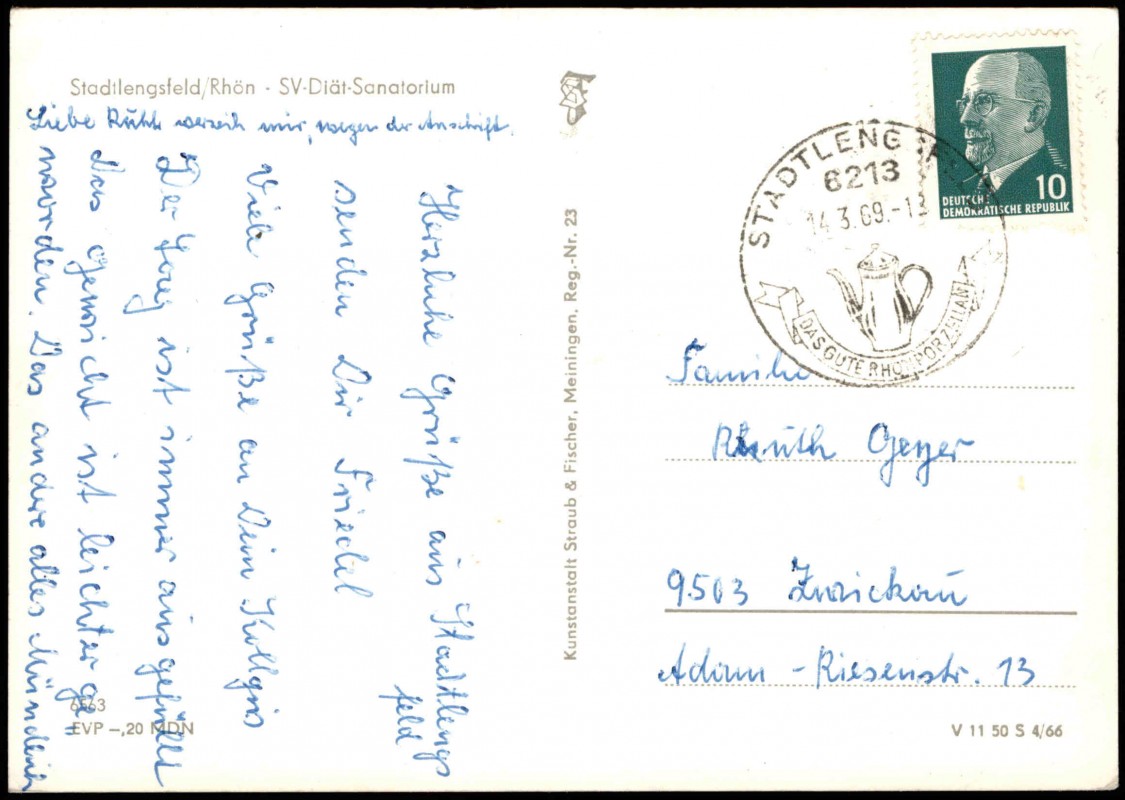 Stadtlengsfeld/Rhön · SV-Diät-Sanatorium
Liebe Ruth verzeih mir, wegen der Anschrift.
Herzliche Grüße aus Stadtlengs
feld
senden Dir Friedel
Viele Grüße an Dein Kollgis
Der Tag ist immer ausgefüllt
Das Gewicht ist leichter ge=
worden. Das andre alles Mündlich
6563
EVP –,20 MDN
Kunstanstalt Straub & Fischer, Meiningen, Reg.-Nr. 23
DEUTSCHE
DEMOKRATISCHE REPUBLIK
10
STADTLENGSFELD
6213
14.3.69.-13
DAS GUTE RHÖNPORZELLAN
Familie
Ruth Geyer
9503 Zwickau
Adam-Riesenstr. 13
V 11 50 S 4/66